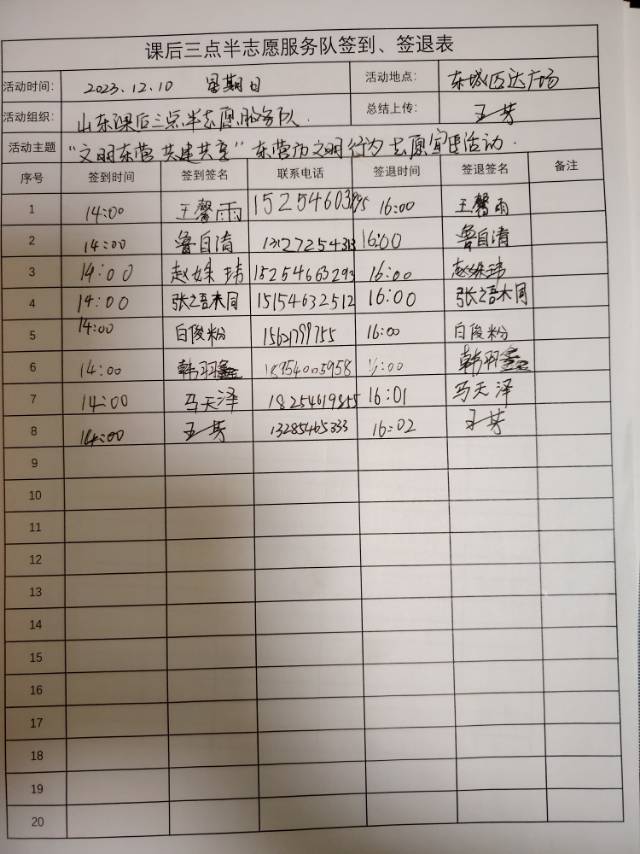 课后三点半志愿服务队签到、签退表
活动时间: 2023.12.10 星期日 活动地点: 东城万达广场
活动组织: 山东课后三点半志愿服务队. 总结上传: 王芳
活动主题 “文明东营 共建共享” 东营市文明行为 志愿宣传活动.
序号 签到时间 签到签名 联系电话 签退时间 签退签名 备注
1 14:00 王馨雨 16:00 王馨雨
2 14:00 鲁自清 16:00 鲁自清
3 14:00 赵姝玮 15254663293 16:00 赵姝玮
4 14:00 张语木同 15154632512 16:00 张语木同
5 14:00 白俊粉 16:00 白俊粉
6 14:00 韩羽鑫 韩羽鑫
7 14:00 马天泽 16:01 马天泽
8 14:00 王芳 13285465333 16:02 王芳
9
10
11
12
13
14
15
16
17
18
19
20